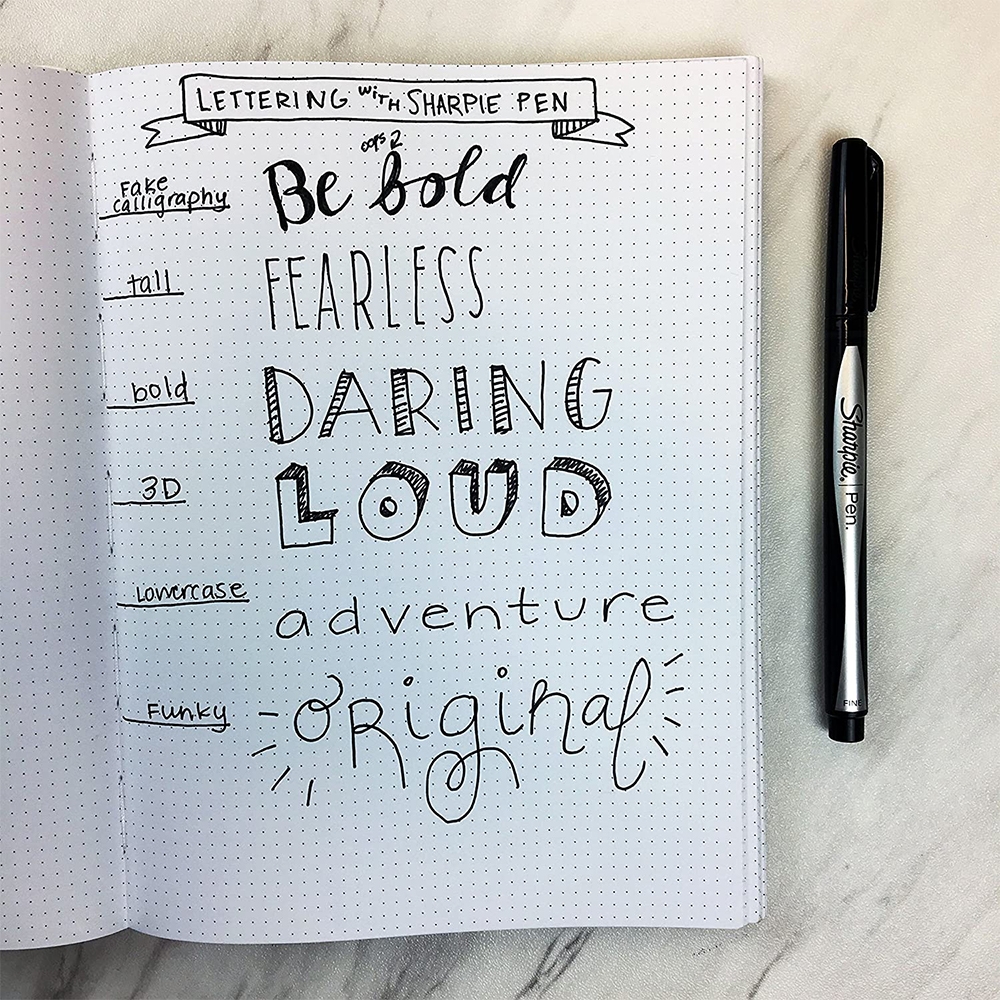 LETTERING WiTH SHARPIE PEN
oops
Fake
calligraphy
Be bold
tall
FEARLESS
bold
DARING
3D
LOUD
Lowercase
adventure
Funky
ORiginal
Sharpie. Pen.
FINE